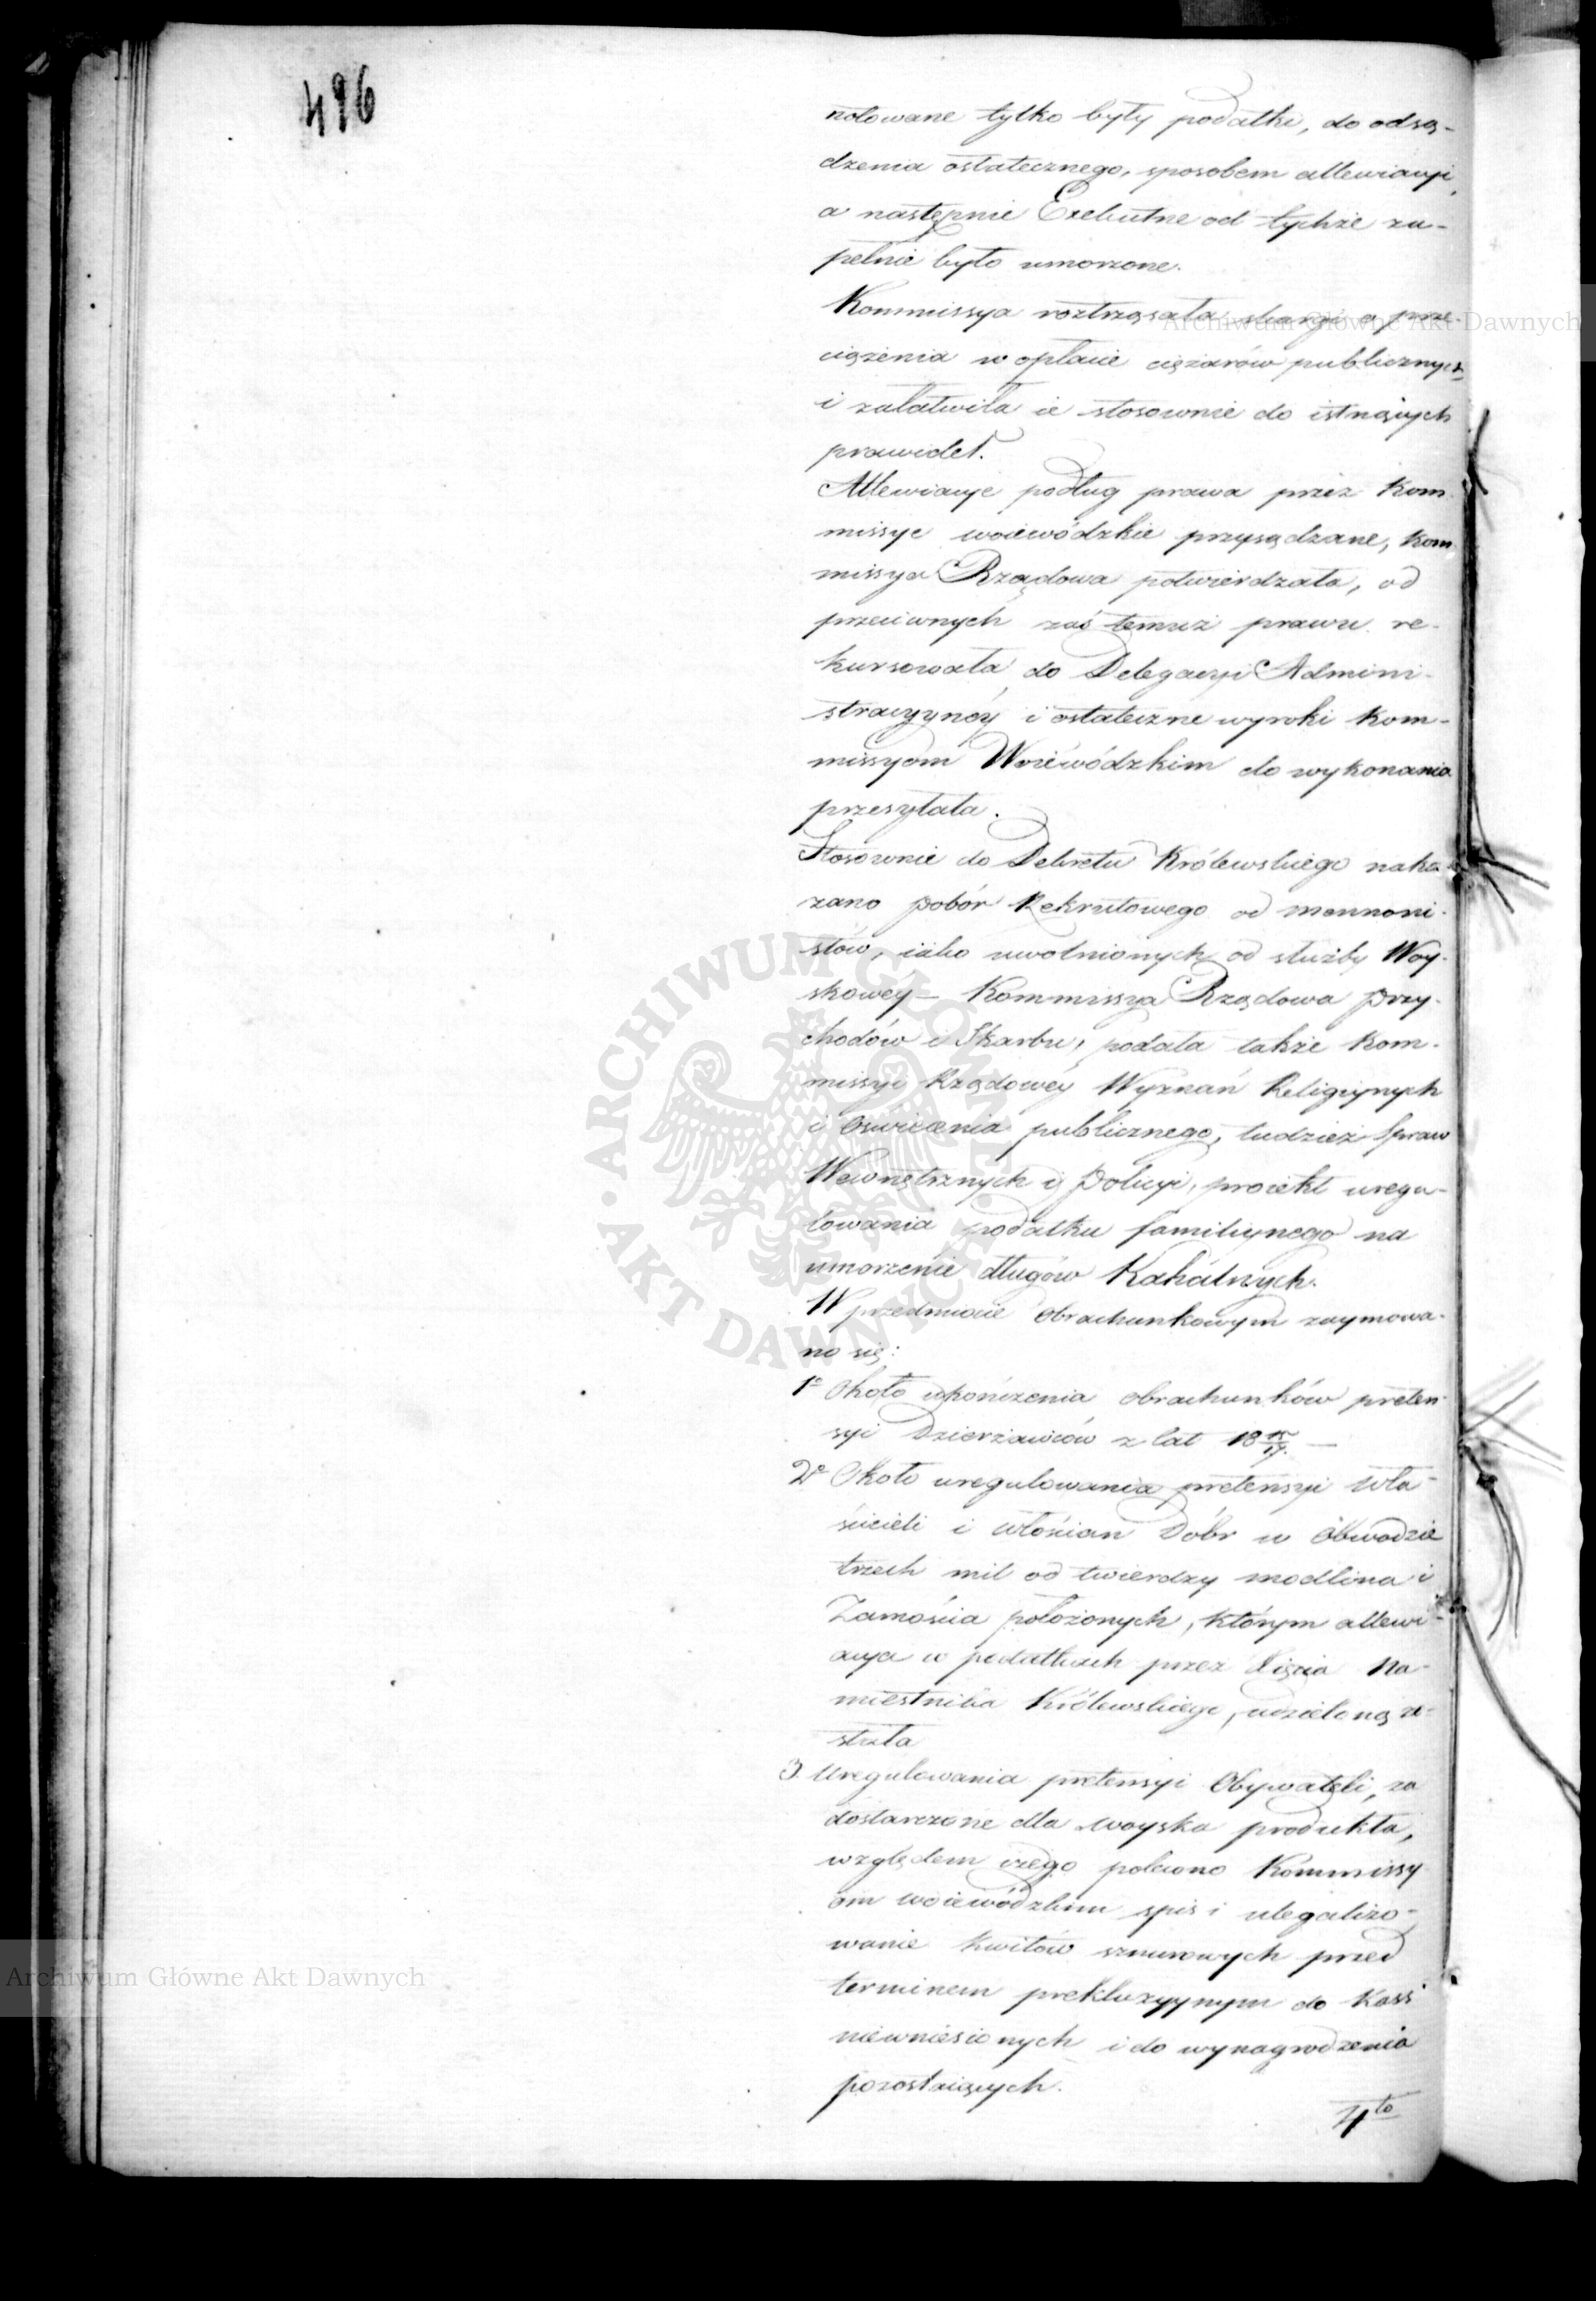 496
notowane tylko były podatki, do odsą-
dzenia ostatecznego, sposobem allewiacyi,
a następnie Exekutne od tychże zu-
pełnie było umorzone.
Kommissya roztrząsała skargi o prze-
ciążenia w opłacie ciężarów publicznych
i załatwiła ie stosownie do istnących
prawideł.
Allewiacye podług prawa przez Kom-
missye woiewódzkie przysądzane, Kom-
missya Rządowa potwierdzała, od
przeciwnych zaś temuż prawu re-
kursowała do Delegacyi Admini-
stracyyney i ostateczne wyroki Kom-
missyom Woiewódzkim do wykonania
przesyłała.
Stosownie do Dekretu Królewskiego naka-
zano pobór Rekrutowego od mennoni-
stów, iako uwolnionych od służby Woy-
skowey – Kommissya Rządowa Przy-
chodów i Skarbu, podała także Kom-
missyi Rządowéy Wyznań Religiynych
i Oświecenia publicznego, tudzież Spraw
Wewnętrznych i Policyi, proiekt uregu-
lowania podatku familiynego na
umorzenie długów Kahalnych.
W przedmiocie Obrachunkowym zaymowa-
no się:
1o Około ukończenia obrachunków preten-
syi Dzierżawców z lat 18 15/17. —
2o Około uregulowania pretensyi wła-
ścicieli i włościan Dóbr w Obwodzie
trzech mil od twierdzy modlina i
Zamościa położonych, którym allewi-
acya w podatkach przez Xięcia Na-
miestnika Królewskiego, udzieloną zo-
stała
3. Uregulowania pretensyi Obywateli, za
dostarczone dla woyska produkta,
względem czego polecono Kommissy
om woiewódzkim spis i ulegalizo-
wanie kwitów sznurowych przed
terminem prekluzyynym do Kass
niewniesionych i do wynagrodzenia
pozostaiących.
4to
Archiwum Główne Akt Dawnych
Archiwum Główne Akt Dawnych
ARCHIWUM GŁÓWNE · AKT DAWNYCH ·